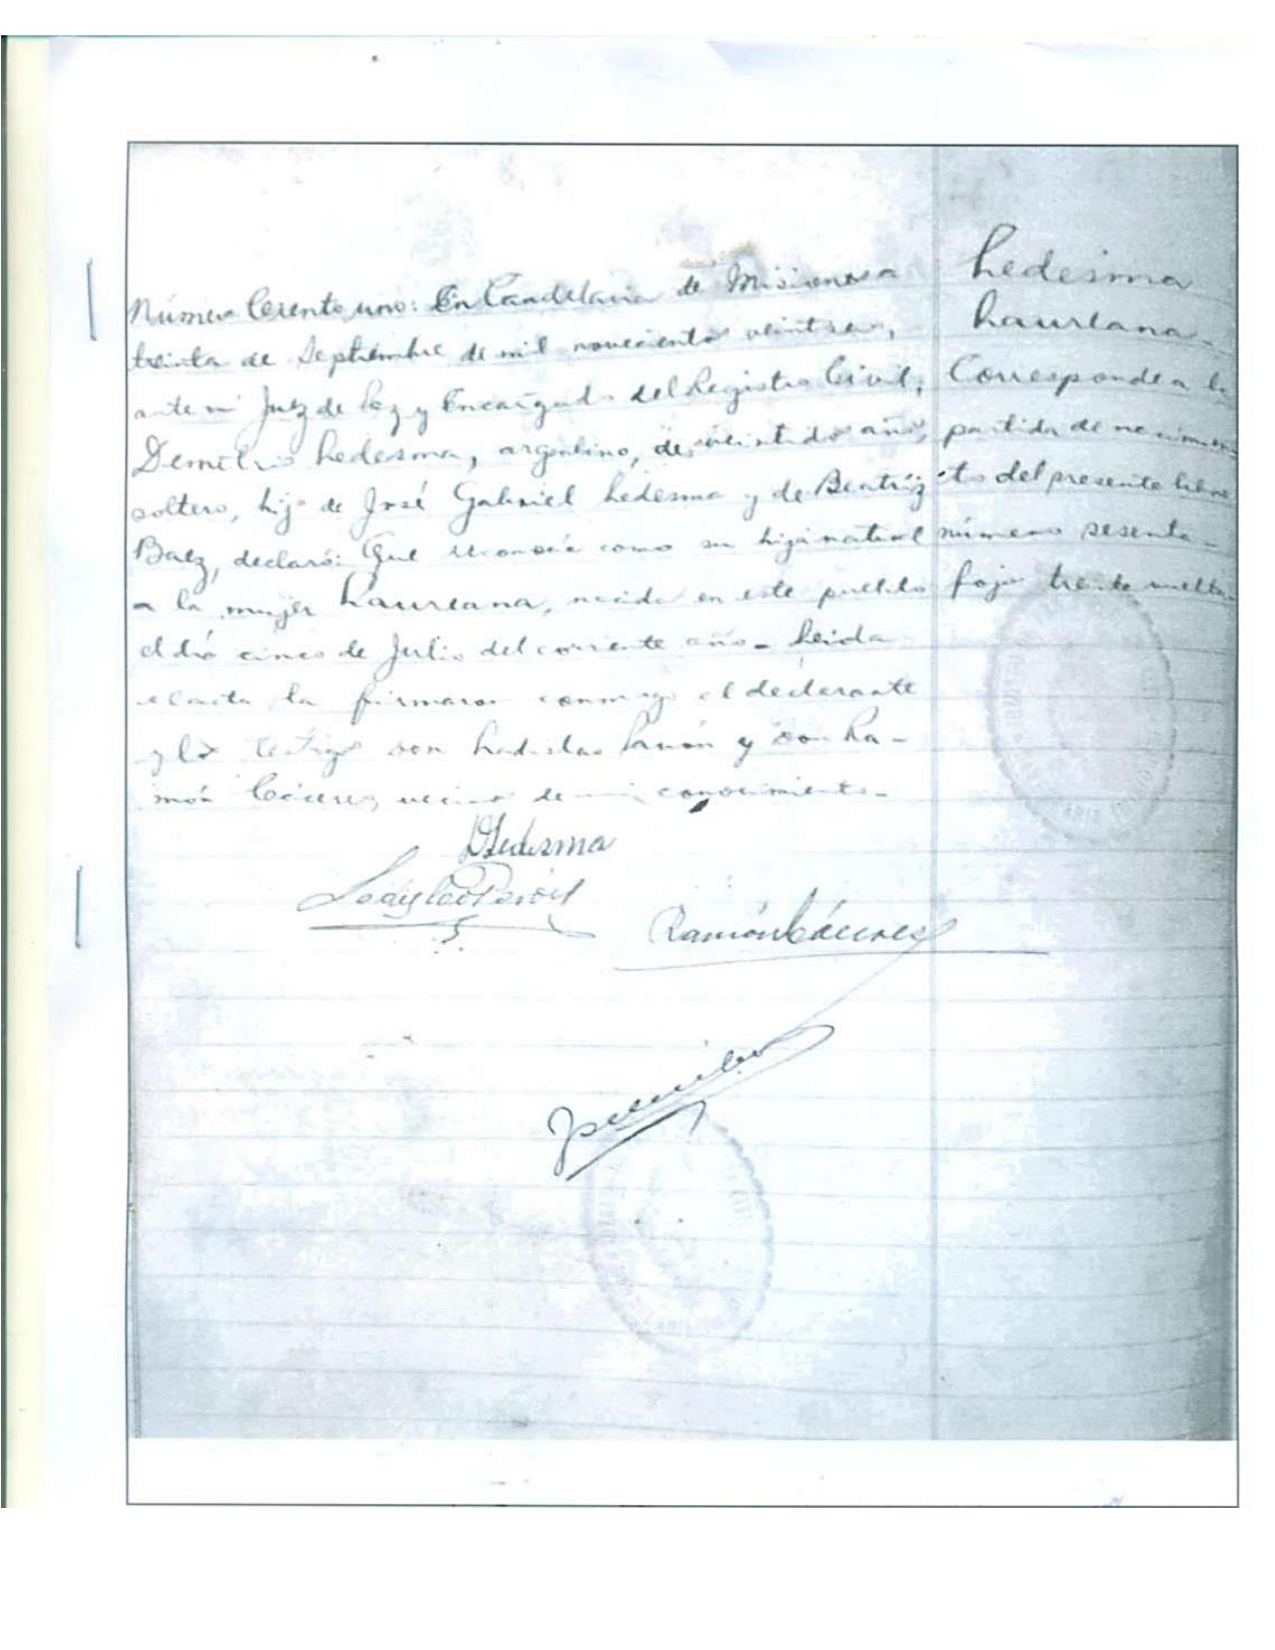 Número Ciento uno: En Candelaria de Misiones a
treinta de Septiembre de mil novecientos
ante mi Juez de Paz y Encargado del Registro Civil;
Demetrio Ledesma, argentino, de veintidos años,
soltero, hijo de José Gabriel Ledesma y de Beatríz
Baez, declaró: Que reconocía como su hija natural
a la mujer Laureana, nacida en este pueblo
el día cinco de Julio del corriente año - Leida
el acta la firmaron conmigo el declarante
y los testigos don Ladislao y don Ra-
món Cáceres, vecinos de mi conocimiento -
Ledesma
Laureana -
Corresponde a la
partida de nacimien
to del presente libro
número sesenta -
foja treinta vuelta -
DLedesma
Ramón Cáceres